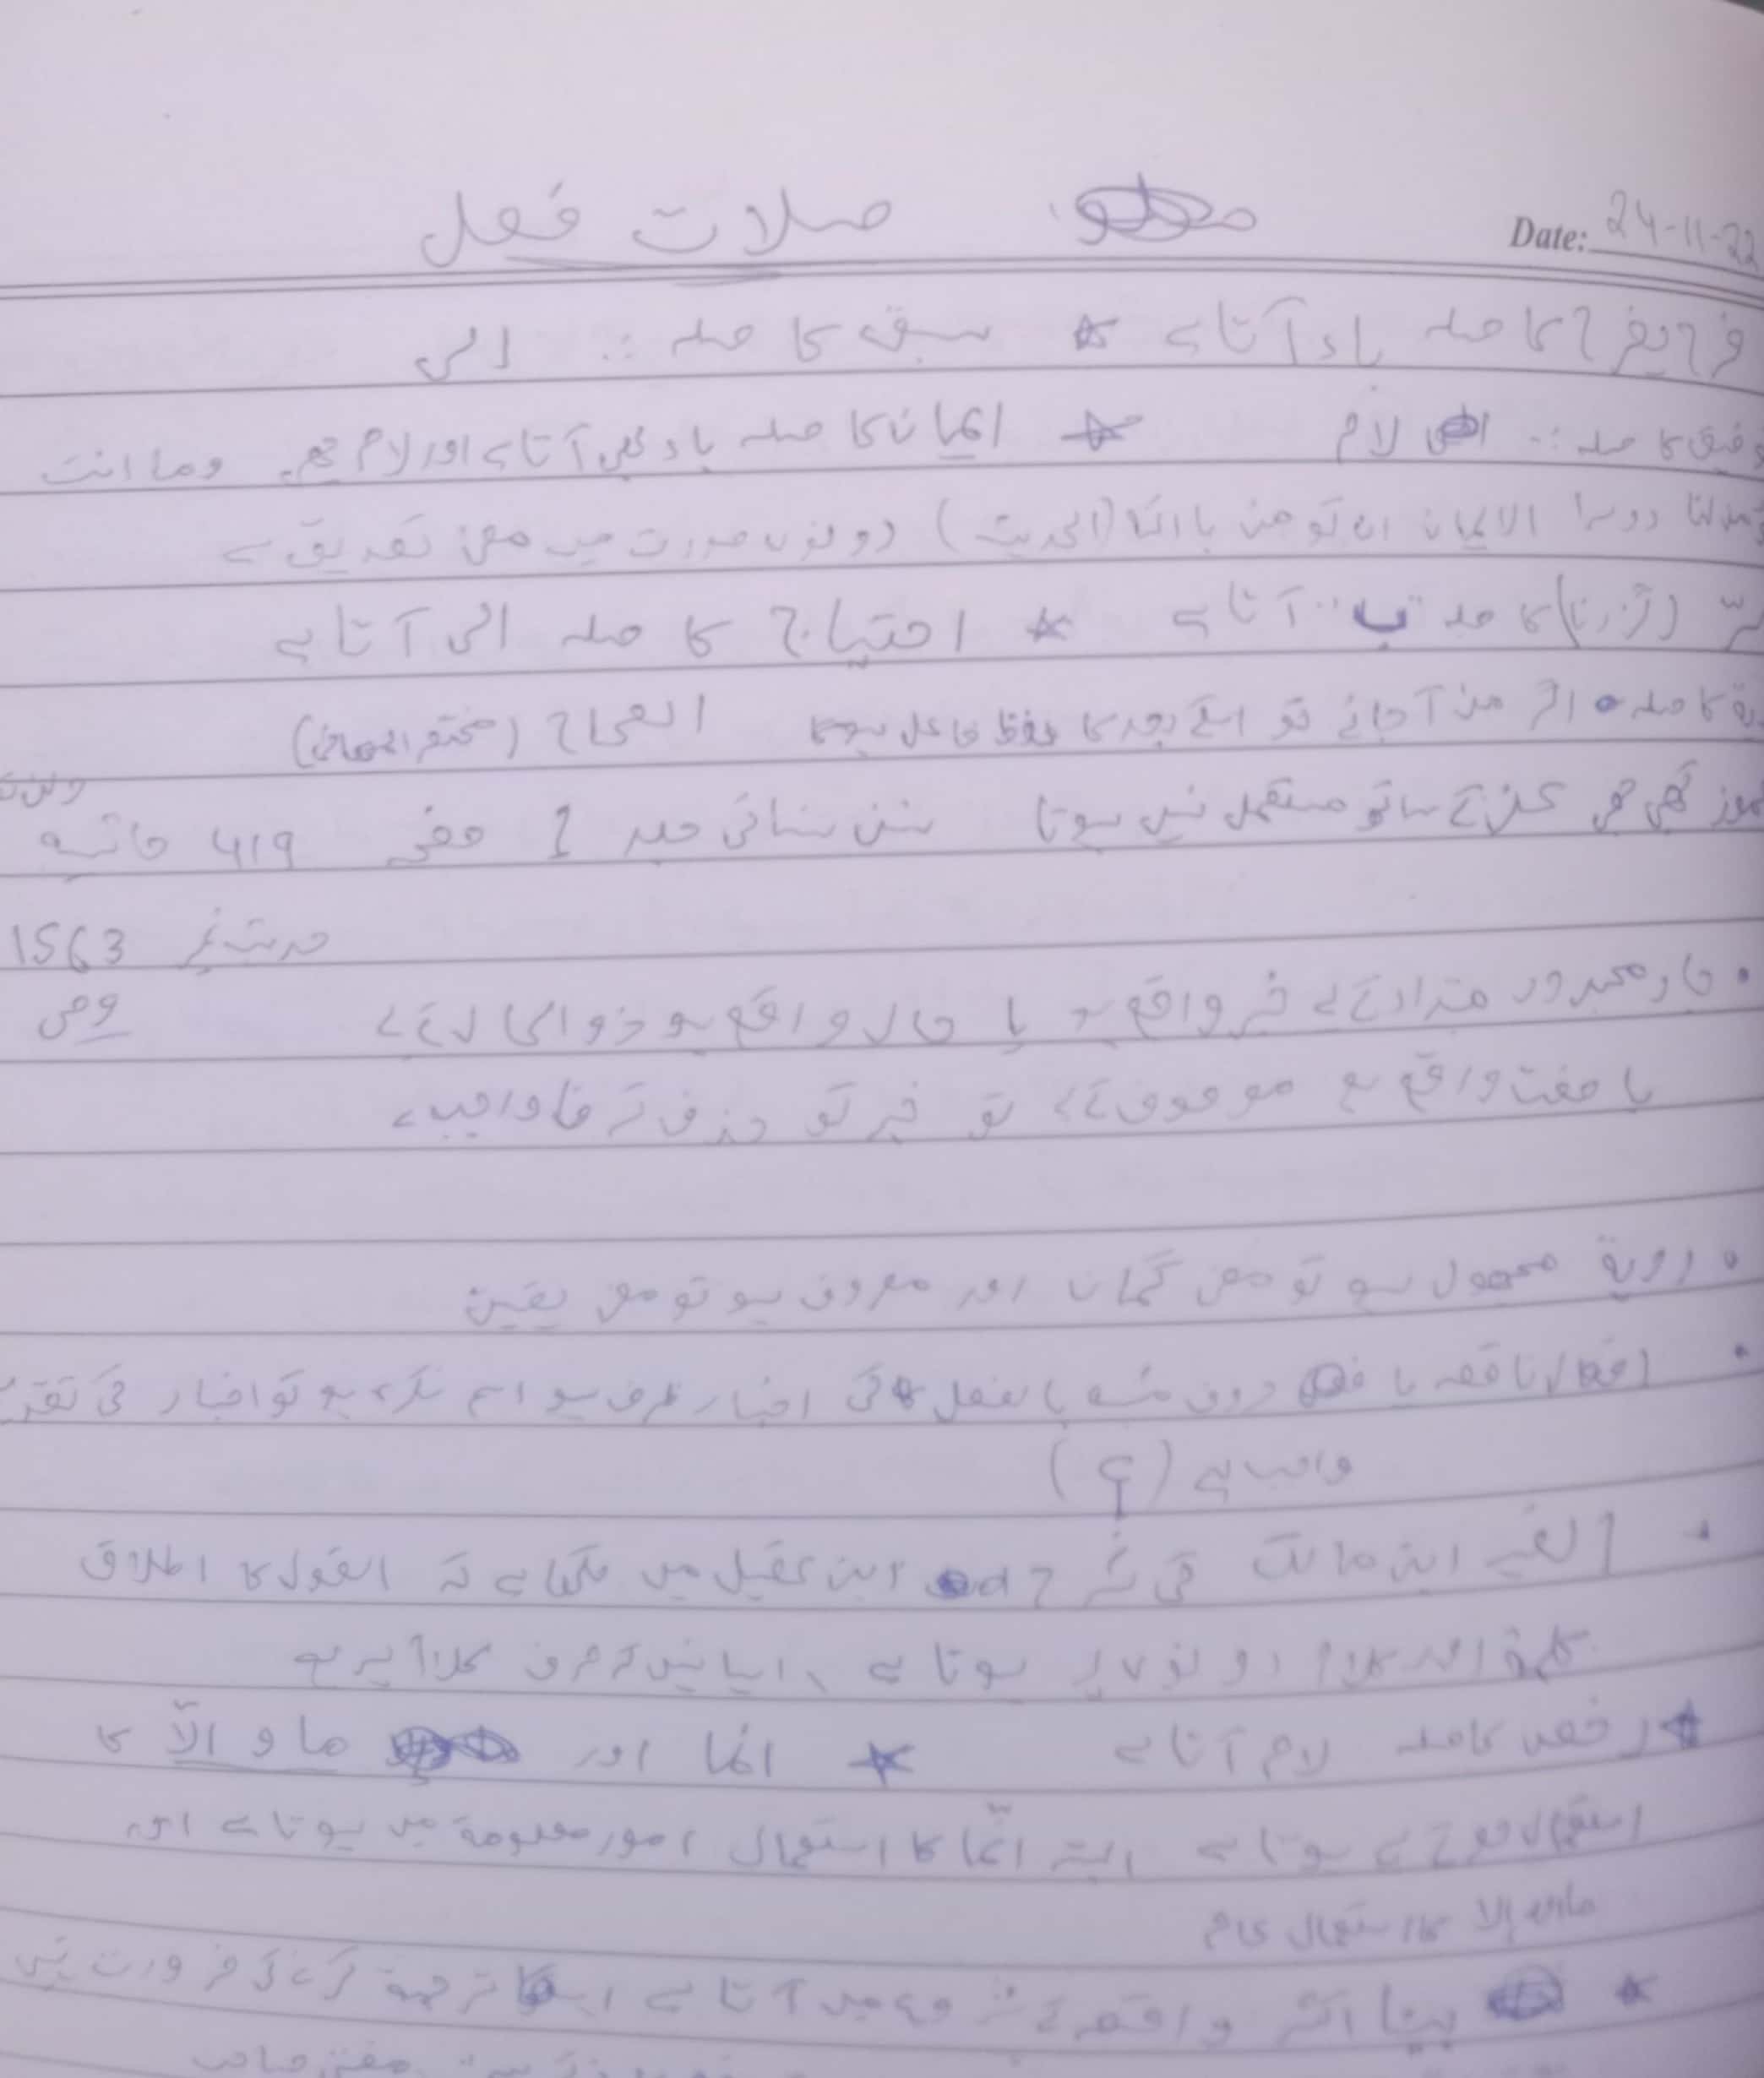 صلات فعل
Date: 24-11-22
فرح یفرح کا صلہ باء آتا ہے * سبق کا صلہ :. الی
کا صلہ :. لام * ایمان کا صلہ باء بھی آتا ہے اور لام بھی وما انت
لنا دوسرا الایمان ان تومن باللہ (الحدیث) دونوں صورت میں معنی تصدیق ہے
مرّ (گزرنا) کا صلہ "ب" آتا ہے * احتیاج کا صلہ الی آتا ہے
کا صلہ اگر من آ جائے تو اسکے بعد کا لفظ فاعل ہوگا الصحاح
کبھی بھی کے ساتھ مستعمل نہیں ہوتا سنن نسائی جلد 1 صفحہ 419 حاشیہ
حدیث نمبر 1563
• جار مجرور مبتداء کے لئے خبر واقع ہو یا حال واقع ہو ذوالحال کے لئے
یا صفت واقع ہو موصوف کے لئے تو خبر کو حذف کرنا واجب ہے
• رویة مجہول ہو تو معنی گمان اور معروف ہو تو معنی یقین
• افعال ناقصہ یا حروف مشبہ بالفعل کی اخبار ظرف ہو اسم نکرہ ہو تو اخبار کی
واجب ہے (؟)
• الفیہ ابن مالک کی شرح ابن عقیل میں لکھا ہے کہ القول کا اطلاق
کلمة اور کلام دونوں پر ہوتا ہے ، ایسا نہیں کہ صرف کلام پر ہو
* رخص کا صلہ لام آتا ہے * انما اور ما و الّا کا
استعمال حصر کے لئے ہوتا ہے البتہ انّما کا استعمال امور معلومة میں ہوتا ہے اور
ما اور الا کا استعمال عام
* بینا اکثر واقعہ کے شروع میں آتا ہے اسکا ترجمہ کرنے کی ضرورت نہیں